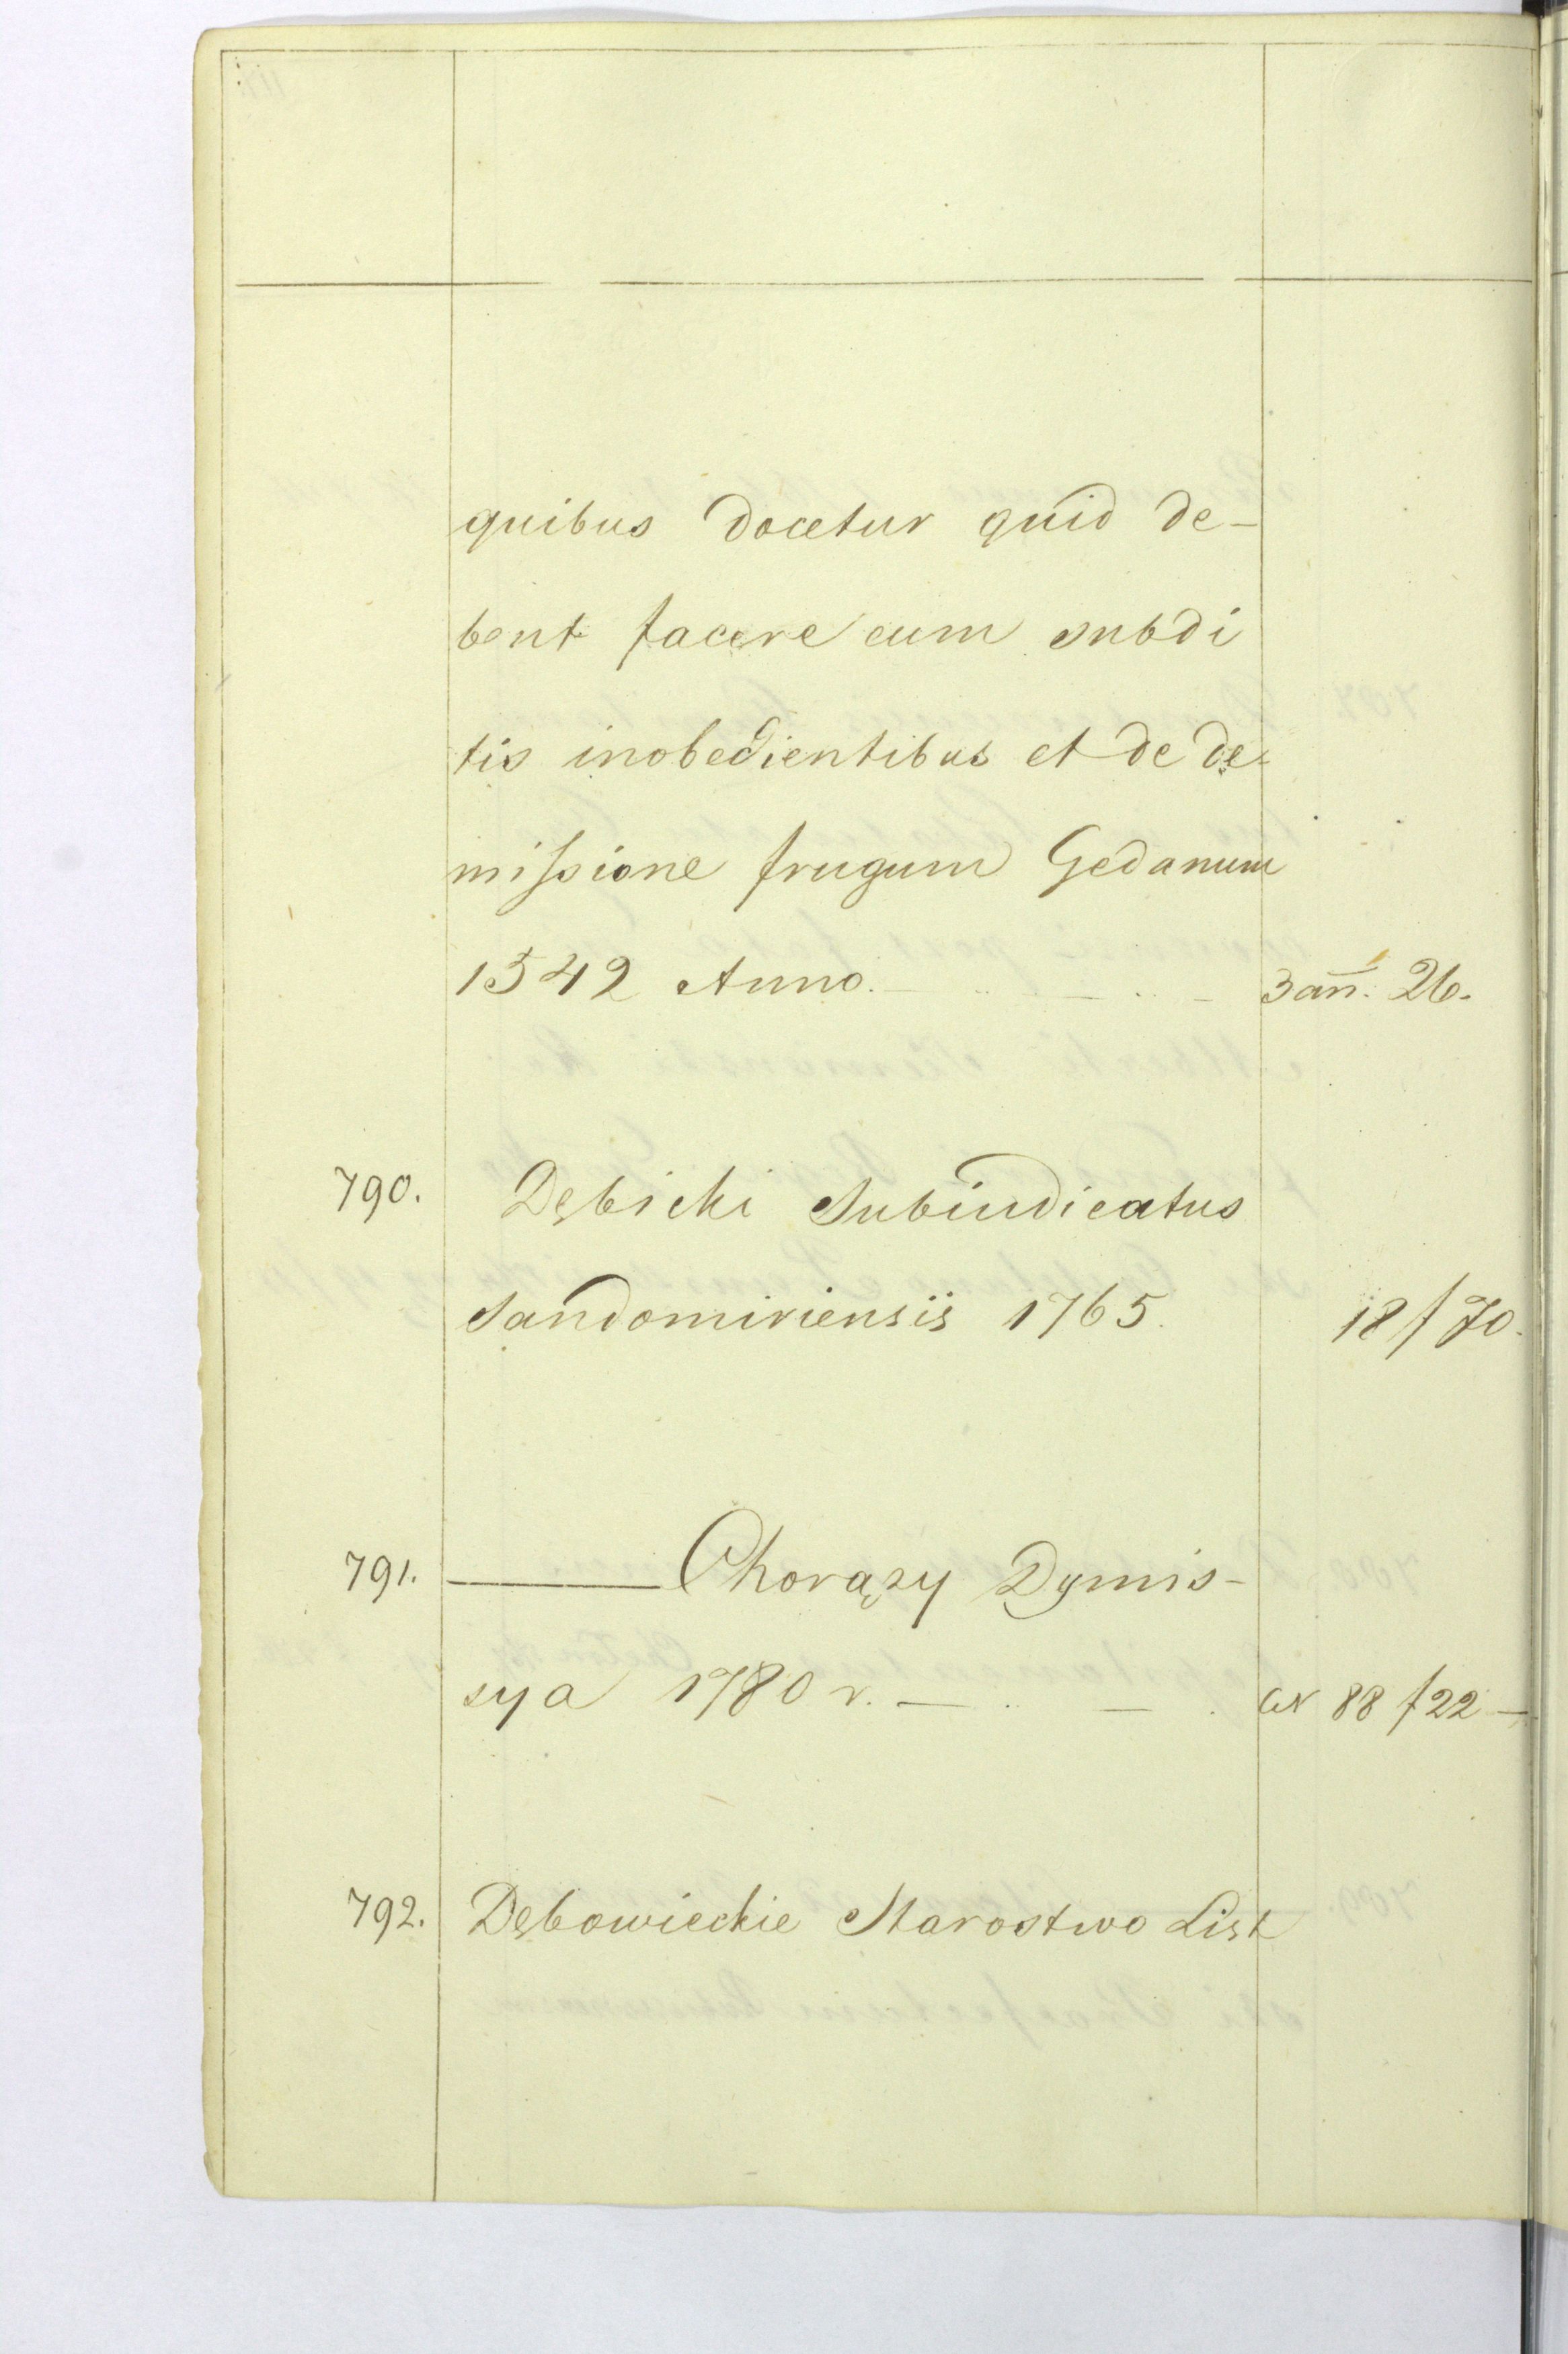 quibus docetur quid de-
bent facere cum subdi
tis inobedientibus et de de-
missione frugum Gedanum
1542 Anno. 3 añ. 26.
790. Dębicki Subiudicatus
Sandomiriensis 1765. 18 f 70.
791. ——— Chorąży Dymis-
sya 1780 r. — — 88 f 22 —
792. Dębowieckie Starostwo List